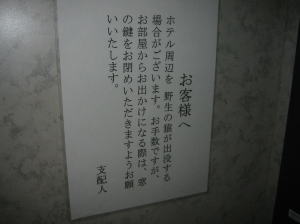 お客様へ
ホテル周辺を 野生の猿が出没する
場合がございます。お手数ですが、
お部屋からお出かけになる際は、窓
の鍵をお閉めいただきますようお願
いいたします。
支配人